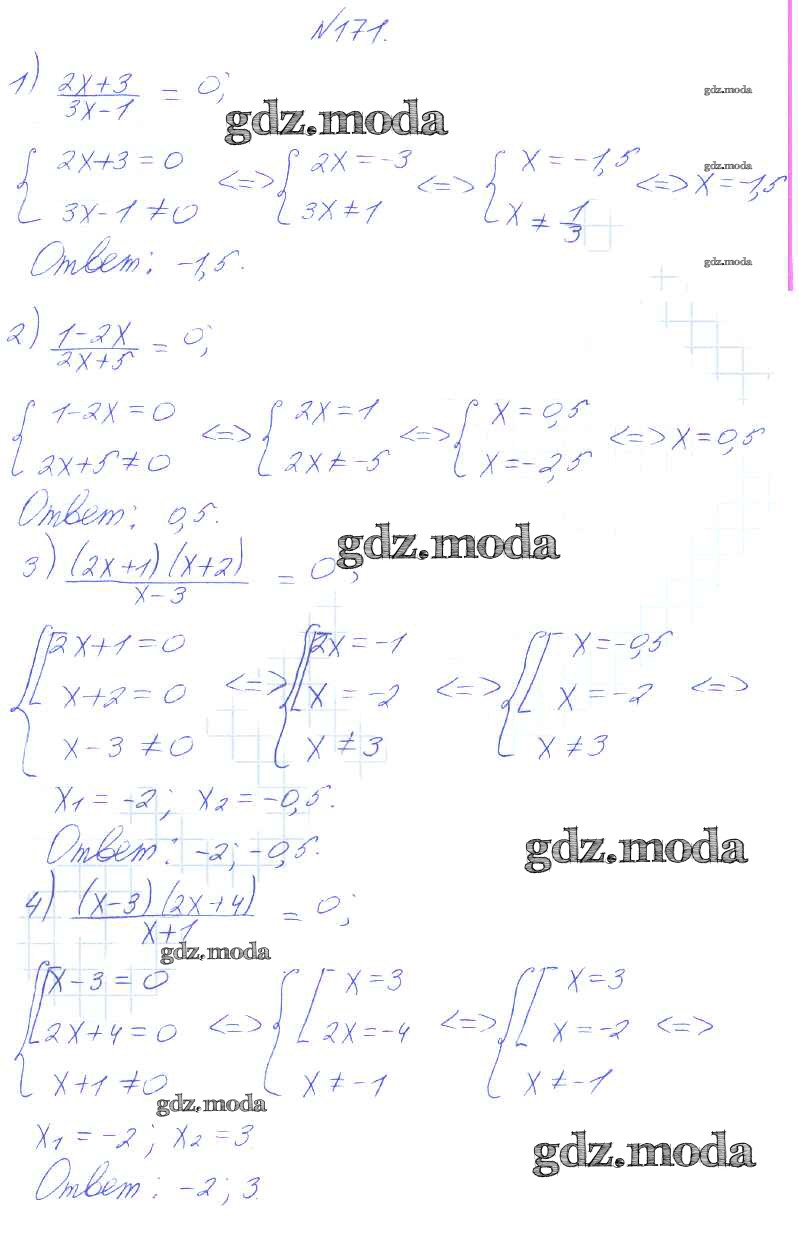 №171.
1) (2x+3)/(3x-1) = 0;
gdz.moda
gdz.moda
{ 2x+3=0 <=> { 2x=-3 <=> { x=-1,5 <=> x=-1,5
3x-1≠0 3x≠1 x≠1/3
gdz.moda
Ответ: -1,5.
gdz.moda
2) (1-2x)/(2x+5) = 0;
{ 1-2x=0 <=> { 2x=1 <=> { x=0,5 <=> x=0,5
2x+5≠0 2x≠-5 x=-2,5
Ответ: 0,5.
gdz.moda
3) (2x+1)(x+2)/(x-3) = 0;
{ [ 2x+1=0 <=> { [ 2x=-1 <=> { [ x=-0,5 <=>
x+2=0 x=-2 x=-2
x-3≠0 x≠3 x≠3
x1=-2; x2=-0,5.
Ответ: -2; -0,5.
gdz.moda
4) (x-3)(2x+4)/(x+1) = 0;
gdz.moda
{ [ x-3=0 <=> { [ x=3 <=> { [ x=3 <=>
2x+4=0 2x=-4 x=-2
x+1≠0 x≠-1 x≠-1
gdz.moda
x1=-2; x2=3
gdz.moda
Ответ: -2; 3.